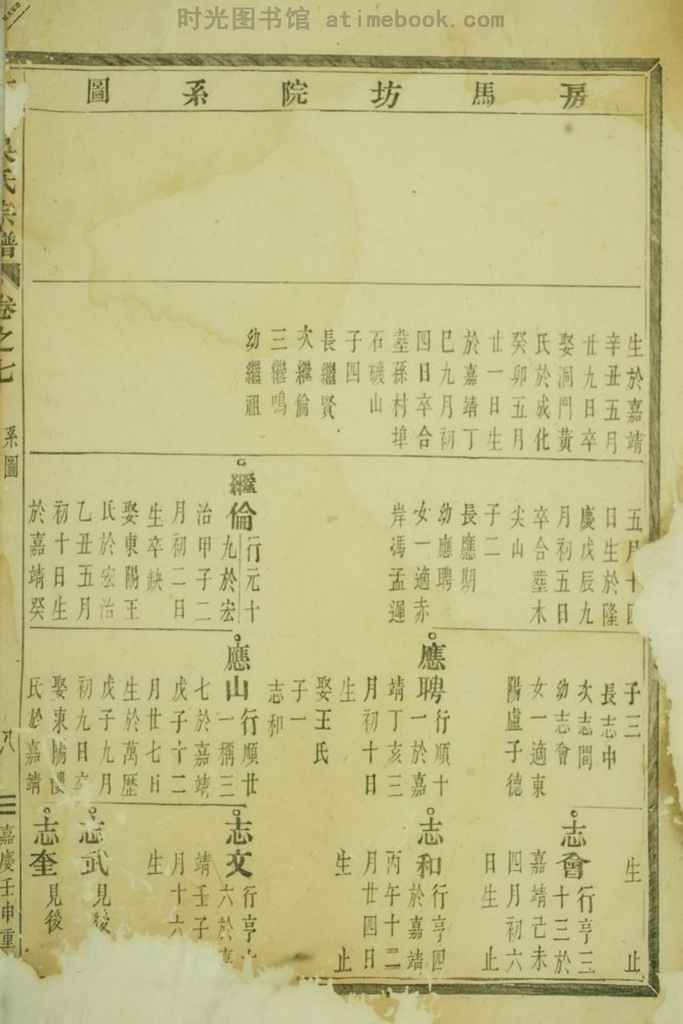 时光图书馆 atimebook.com
房馬坊院系圖
生於嘉靖
辛丑五月
廿九日卒
娶洞門黃
氏於成化
癸卯五月
廿一日生
於嘉靖丁
巳九月初
四日卒合
塟孫村埠
石磯山
子四
長繼賢
次繼倫
三繼鳴
幼繼祖
五月十四
日生於隆
慶戊辰九
月初五日
卒合塟木
尖山
子二
長應期
幼應聘
女一適赤
岸馮孟暹
繼倫行元十
九於宏
治甲子二
月初二日
生卒缺
娶東陽王
氏於宏治
乙丑五月
初十日生
於嘉靖癸
子三
長志中
次志間
幼志會
女一適東
陽盧子德
應聘行順十
一於嘉
靖丁亥三
月初十日
生
娶王氏
子一
志和
應山行順廿
一稱三
七於嘉靖
戊子十二
月廿七日
生於萬歷
戊子九月
初九日卒
娶東陽樓
氏於嘉靖
生止
志會行亨三
十三於
嘉靖己未
四月初六
日生止
志和行亨四
於嘉靖
丙午十二
月廿四日
生止
志文行亨
六於
靖壬子
月十六
生
志武見後
志奎見後
吳氏宗譜 卷之七 系圖 八 嘉慶壬申重